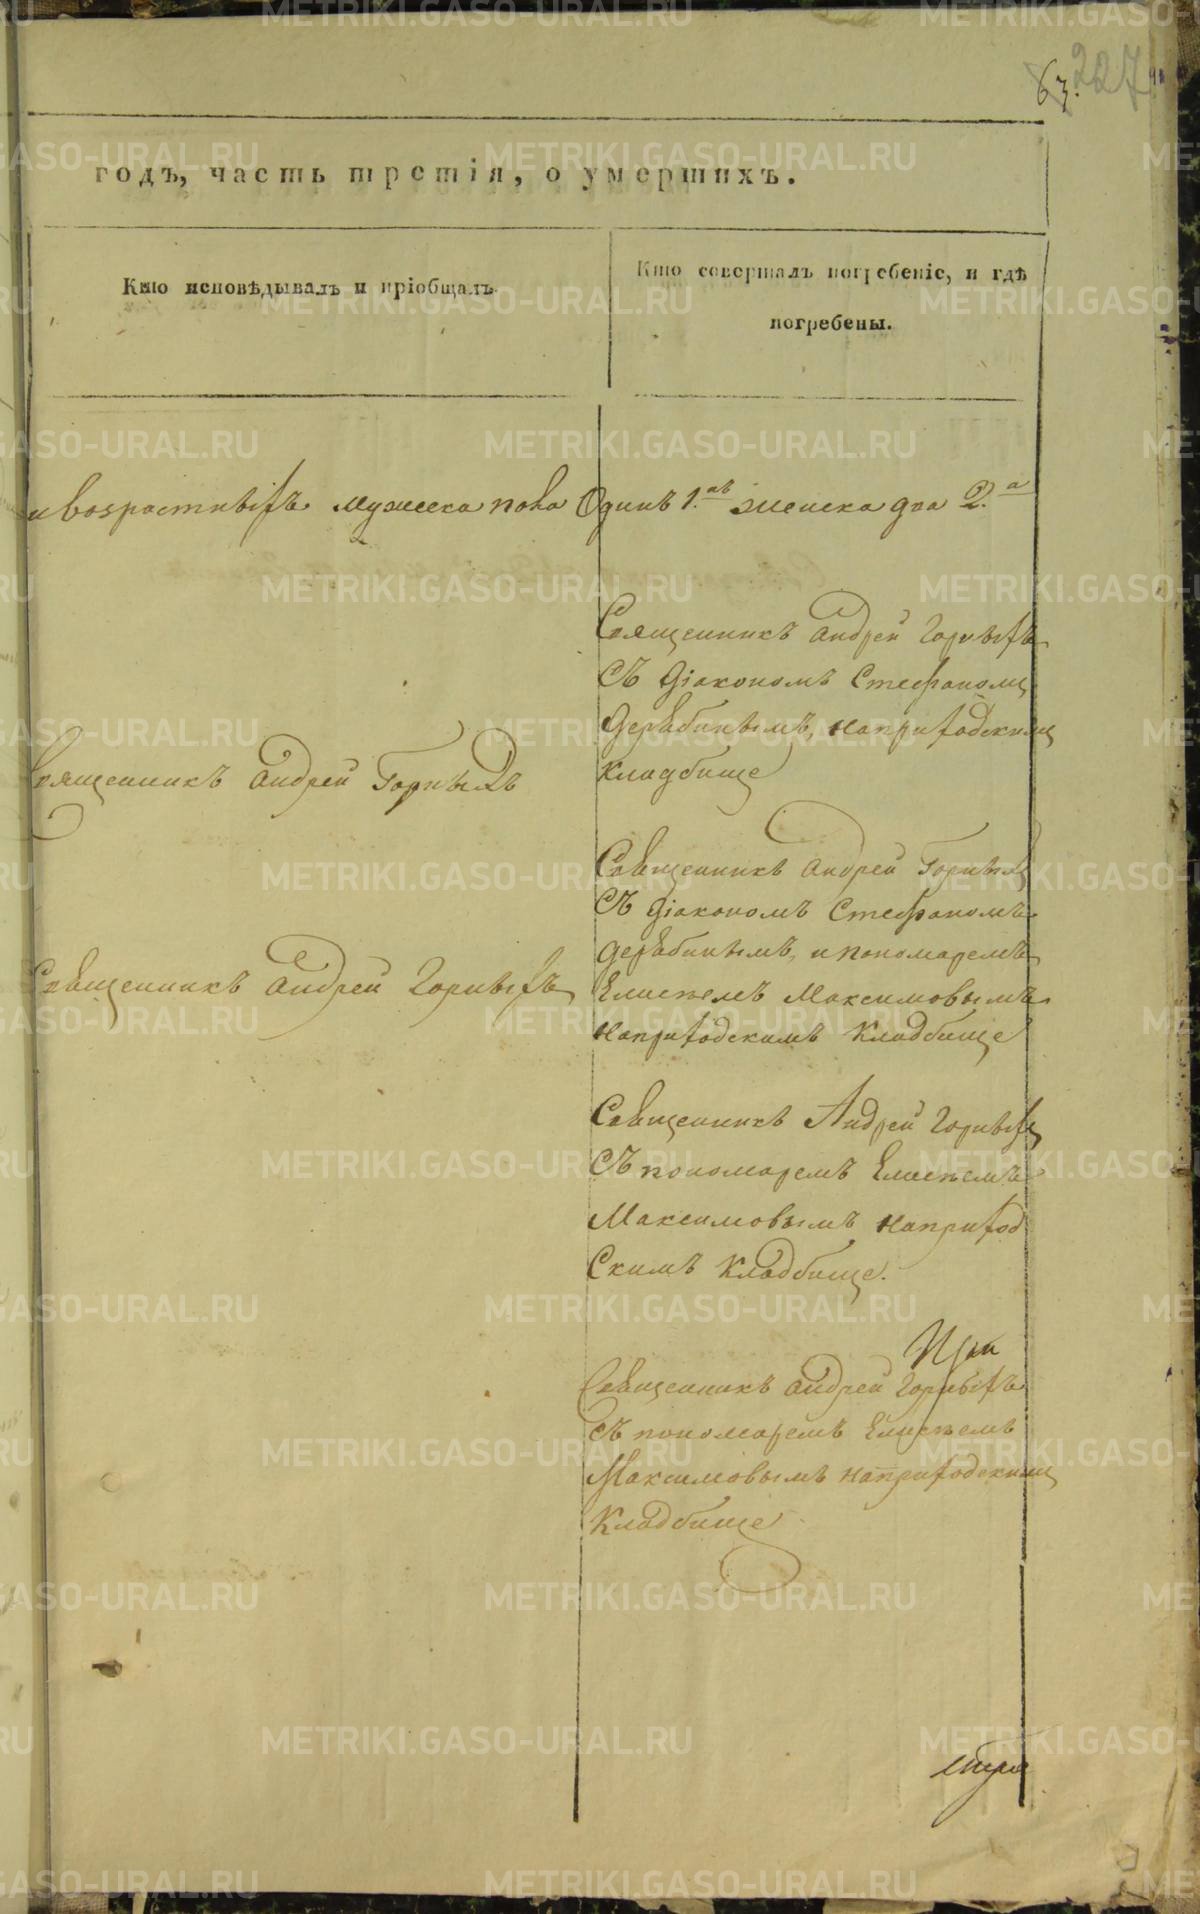 63. 227
годъ, часть третія, о умершихъ.
Кто исповѣдывалъ и пріобщалъ.
Кто совершалъ погребеніе, и гдѣ
погребены.
и возрастныхъ мужеска пола Одинъ 1. женска два 2.а
Священникъ Андрей Горныхъ
Съ Діакономъ Стефаномъ
Дерябинымъ, наприходскимъ
Кладбище
Священникъ Андрей Горныхъ
Священникъ Андрей Горныхъ
Съ Діакономъ Стефаномъ
Дерябинымъ, и пономаремъ
Елисѣемъ Максимовымъ
наприходскимъ Кладбище
Священникъ Андрей Горныхъ
Священникъ Андрей Горныхъ
Съ пономаремъ Елисѣемъ
Максимовымъ наприход
Скимъ Кладбище.
Священникъ Андрей Горныхъ
Съ пономаремъ Елисѣемъ
Максимовымъ наприходскимъ
Кладбище
METRIKI.GASO-URAL.RU